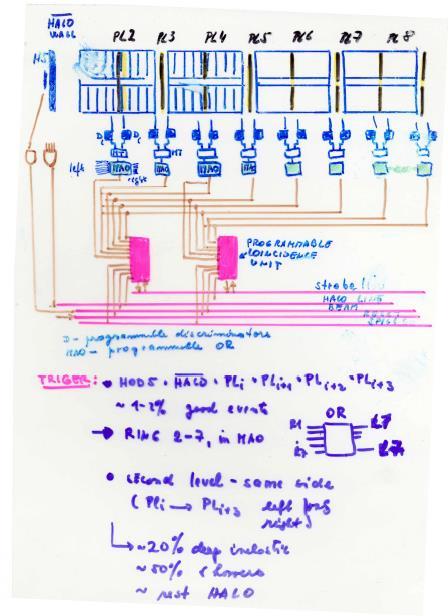 HALO PL2 PL3 PL4 PL5 PL6 PL7 PL8
WALL
H5
D D D
MT
left MAO MAO MAO
right
PROGRAMMABLE
COINCIDENCE
UNIT
strobe
HALO LINE
BEAM
D - programmable discriminators
MAO - programmable OR
TRIGER: • HOD5 · HALO · PLi · PLi+1 · PLi+2 · PLi+3
~ 1-2% good events
OR
→ RING 2-7, in MAO
• second level - same side
(PLi → PLi+3 left
right)
→ ~20% deep inelastic
~50% showers
~ rest HALO